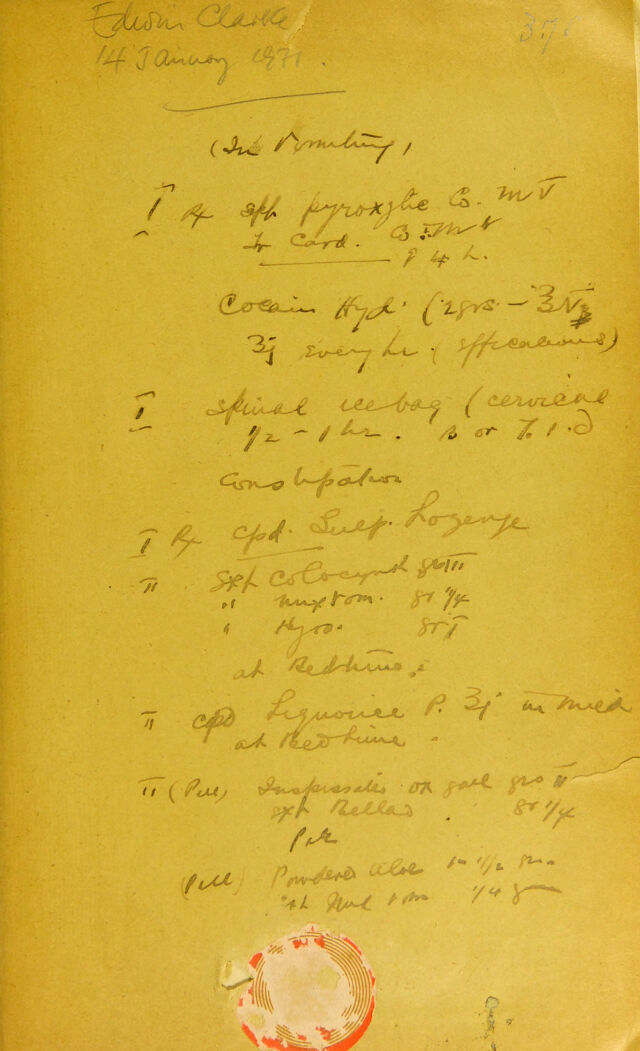 Edwin Clarke
14 January 1971.
(In Vomiting)
I ℞ Spt pyroxylic Co. m V
Tr Card. Co. m V
4 h.
Cocain Hyd. (2grs – ℥ IV
ʒj every hr (efficacious)
I Spinal icebag (cervical
1/2 – 1 hr. B or T.i.d
Constipation
I ℞ Cpd. Sulp. Lozenge
II Ext Colocynth grs III
" nux vom. gr 1/4
" Hyos. gr I
at Bedtime.
II Cpd Liquorice P. ʒj in milk
at Bedtime.
II (Pill) Inspissated ox gall grs II
ext Bellad gr 1/4
Pill
(Pill) Powdered Aloe 1/2 grs.
Ext Nux vom 1/4 gr